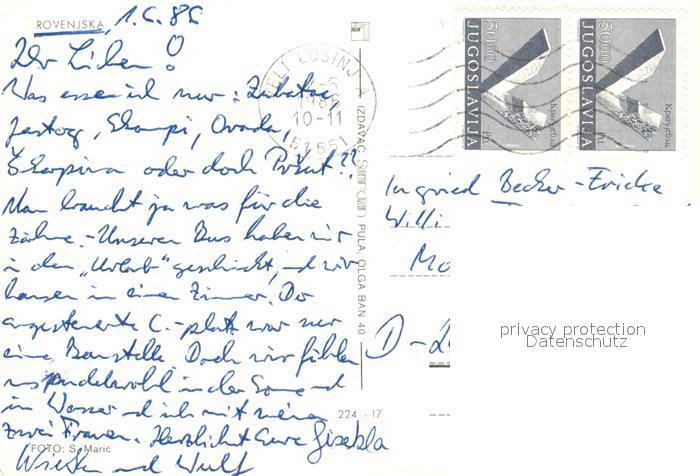 ROVENJSKA, 1.6.86
Ihr Lieben!
Was esse ich nur: Zubatac,
Jastog, Skampi, Ovada,
Škarpina oder doch Pršut??
Man braucht ja was für die
Zähne. - Unseren Bus haben wir
in den „Urlaub" geschickt, und wir
hausen in einem Zimmer. Der
angesteuerte C.-platz war nur
eine Baustelle. Doch wir fühlen
uns pudelwohl in der Sonne und
im Wasser und ich mit meinen
zwei Frauen. Herzlichst Eure Gisela
und Wulf
FOTO: S. Marić
VELI LOŠINJ
1986
10-11
51551
IZDAVAČ PULA, OLGA BAN 40
224 - 17
50.00 JUGOSLAVIJA
50.00 JUGOSLAVIJA
Ingried Becker-Fricke
Willi
Mo
D-2
privacy protection
Datenschutz